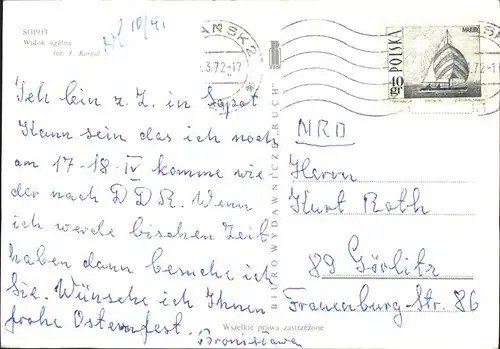 SOPOT
Widok ogólny
fot. J. Korpal
10/41
.3.72-17
POLSKA
40 gr
Ich bin z. Z. in Sopot
Kann sein das ich noch
am 17-18-IV komme wie
der nach D D R. Wenn
ich werde bischen Zeit
haben dann besuche ich
Sie. Wünsche ich Ihnen
frohe Osternfest.
Bronisława
BIURO WYDAWNICZE „RUCH”
NRD
Herrn
Kurt Roth
89 Görlitz
Frauenburg-Str. 86
Wszelkie prawa zastrzeżone